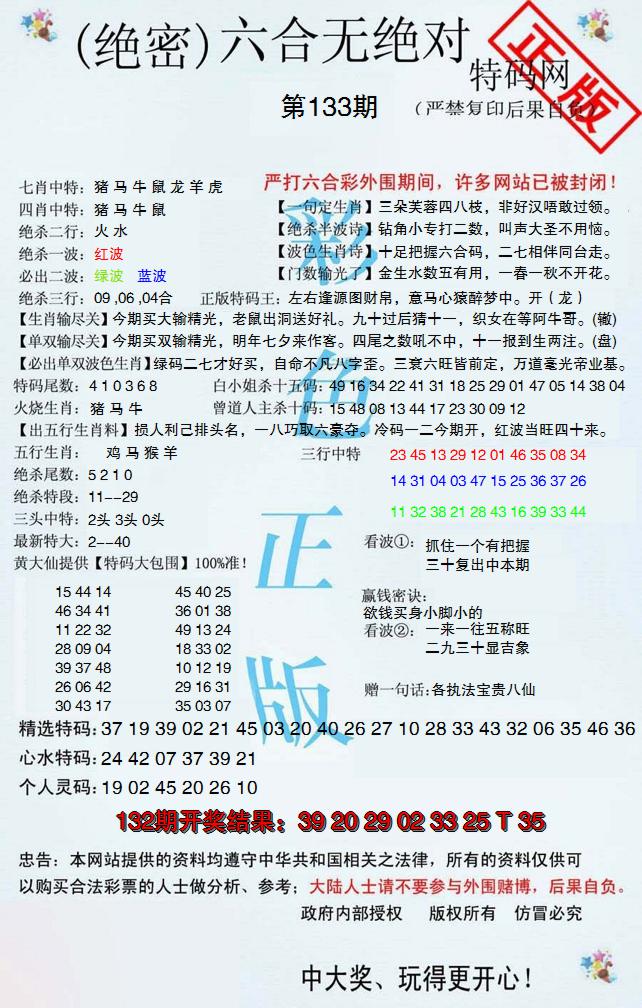 (绝密)六合无绝对
正版
特码网
第133期
（严禁复印后果自负）
七肖中特：猪 马 牛 鼠 龙 羊 虎
严打六合彩外围期间，许多网站已被封闭！
四肖中特：猪 马 牛 鼠
【一句定生肖】三朵芙蓉四八枝，非好汉唔敢过领。
绝杀二行：火 水
【绝杀半波诗】钻角小专打二数，叫声大圣不用恼。
绝杀一波：红波
【波色生肖诗】十足把握六合码，二七相伴同台走。
必出二波：绿波 蓝波
【门数输光了】金生水数五有用，一春一秋不开花。
绝杀三行：09 ,06 ,04合
正版特码王：左右逢源图财帛，意马心猿醉梦中。开（ 龙 ）
【生肖输尽关】今期买大输精光，老鼠出洞送好礼。九十过后猜十一，织女在等阿牛哥。(辙)
【单双输尽关】今期买双输精光，明年七夕来作客。四尾之数吼不中，十一报到生两注。(盘)
【必出单双波色生肖】绿码二七才好买，自命不凡八字歪。三衰六旺皆前定，万道毫光帝业基。
特码尾数：4 1 0 3 6 8
白小姐杀十五码：49 16 34 22 41 31 18 25 29 01 47 05 14 38 04
火烧生肖：猪 马 牛
曾道人主杀十码：15 48 08 13 44 17 23 30 09 12
【出五行生肖料】损人利己排头名，一八巧取六豪夺。冷码一二今期开，红波当旺四十来。
五行生肖： 鸡 马 猴 羊
三行中特 23 45 13 29 12 01 46 35 08 34
绝杀尾数：5 2 1 0
14 31 04 03 47 15 25 36 37 26
绝杀特段：11--29
11 32 38 21 28 43 16 39 33 44
三头中特：2头 3头 0头
最新特大：2--40
看波①：抓住一个有把握
三十复出中本期
黄大仙提供【特码大包围】100%准！
15 44 14 45 40 25
46 34 41 36 01 38
11 22 32 49 13 24
28 09 04 18 33 02
39 37 48 10 12 19
26 06 42 29 16 31
30 43 17 35 03 07
赢钱密诀：
欲钱买身小脚小的
看波②：一来一往五称旺
二九三十显吉象
赠一句话:各执法宝贵八仙
彩色正版
精选特码:37 19 39 02 21 45 03 20 40 26 27 10 28 33 43 32 06 35 46 36
心水特码:24 42 07 37 39 21
个人灵码:19 02 45 20 26 10
132期开奖结果：39 20 29 02 33 25 T 35
忠告：本网站提供的资料均遵守中华共和国相关之法律，所有的资料仅供可
以购买合法彩票的人士做分析、参考；大陆人士请不要参与外围赌博，后果自负。
政府内部授权 版权所有 仿冒必究
中大奖、玩得更开心！